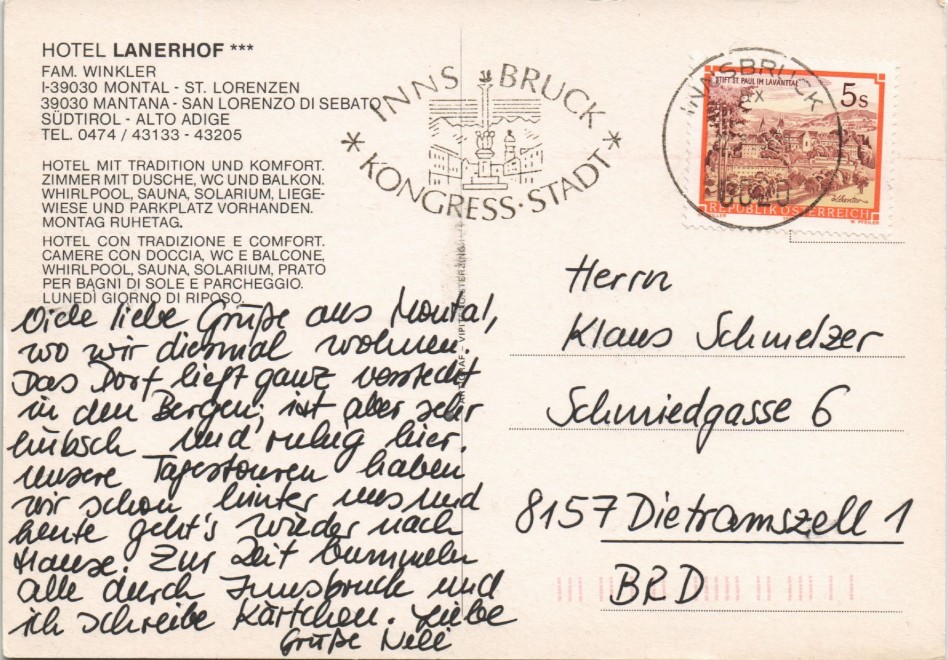 HOTEL LANERHOF ***
FAM. WINKLER
I-39030 MONTAL - ST. LORENZEN
39030 MANTANA - SAN LORENZO DI SEBATO
SÜDTIROL - ALTO ADIGE
TEL. 0474 / 43133 - 43205
HOTEL MIT TRADITION UND KOMFORT.
ZIMMER MIT DUSCHE, WC UND BALKON.
WHIRLPOOL, SAUNA, SOLARIUM, LIEGE-
WIESE UND PARKPLATZ VORHANDEN.
MONTAG RUHETAG.
HOTEL CON TRADIZIONE E COMFORT.
CAMERE CON DOCCIA, WC E BALCONE,
WHIRLPOOL, SAUNA, SOLARIUM, PRATO
PER BAGNI DI SOLE E PARCHEGGIO.
LUNEDÌ GIORNO DI RIPOSO.
Viele liebe Grüße aus Montal,
wo wir diesmal wohnen.
Das Dorf liegt ganz versteckt
in den Bergen, ist aber sehr
hübsch und ruhig hier.
Unsere Tagestouren haben
wir schon hinter uns und
heute geht's wieder nach
Hause. Zur Zeit bummeln
alle durch Innsbruck und
ich schreibe Kärtchen. Liebe
Grüße Neli
INNSBRUCK
* KONGRESS·STADT *
INNSBRUCK
6020
STIFT ST. PAUL IM LAVANTTAL
5s
REPUBLIK ÖSTERREICH
Herrn
Klaus Schmelzer
Schmiedgasse 6
8157 Dietramszell 1
BRD